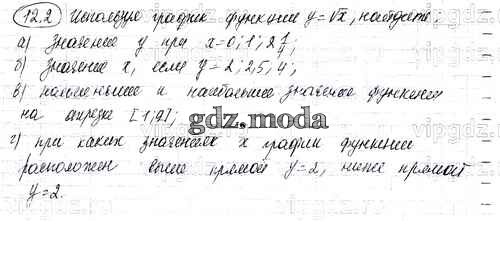 12.2 Используя график функции y=√x, найдите:
а) значение y при x=0; 1; 2 1/4;
б) значение x, если y=2; 2,5; 4;
в) наименьшее и наибольшее значение функции
на отрезке [1;9];
gdz.moda
г) при каких значениях x график функции
расположен выше прямой y=2, ниже прямой
y=2.